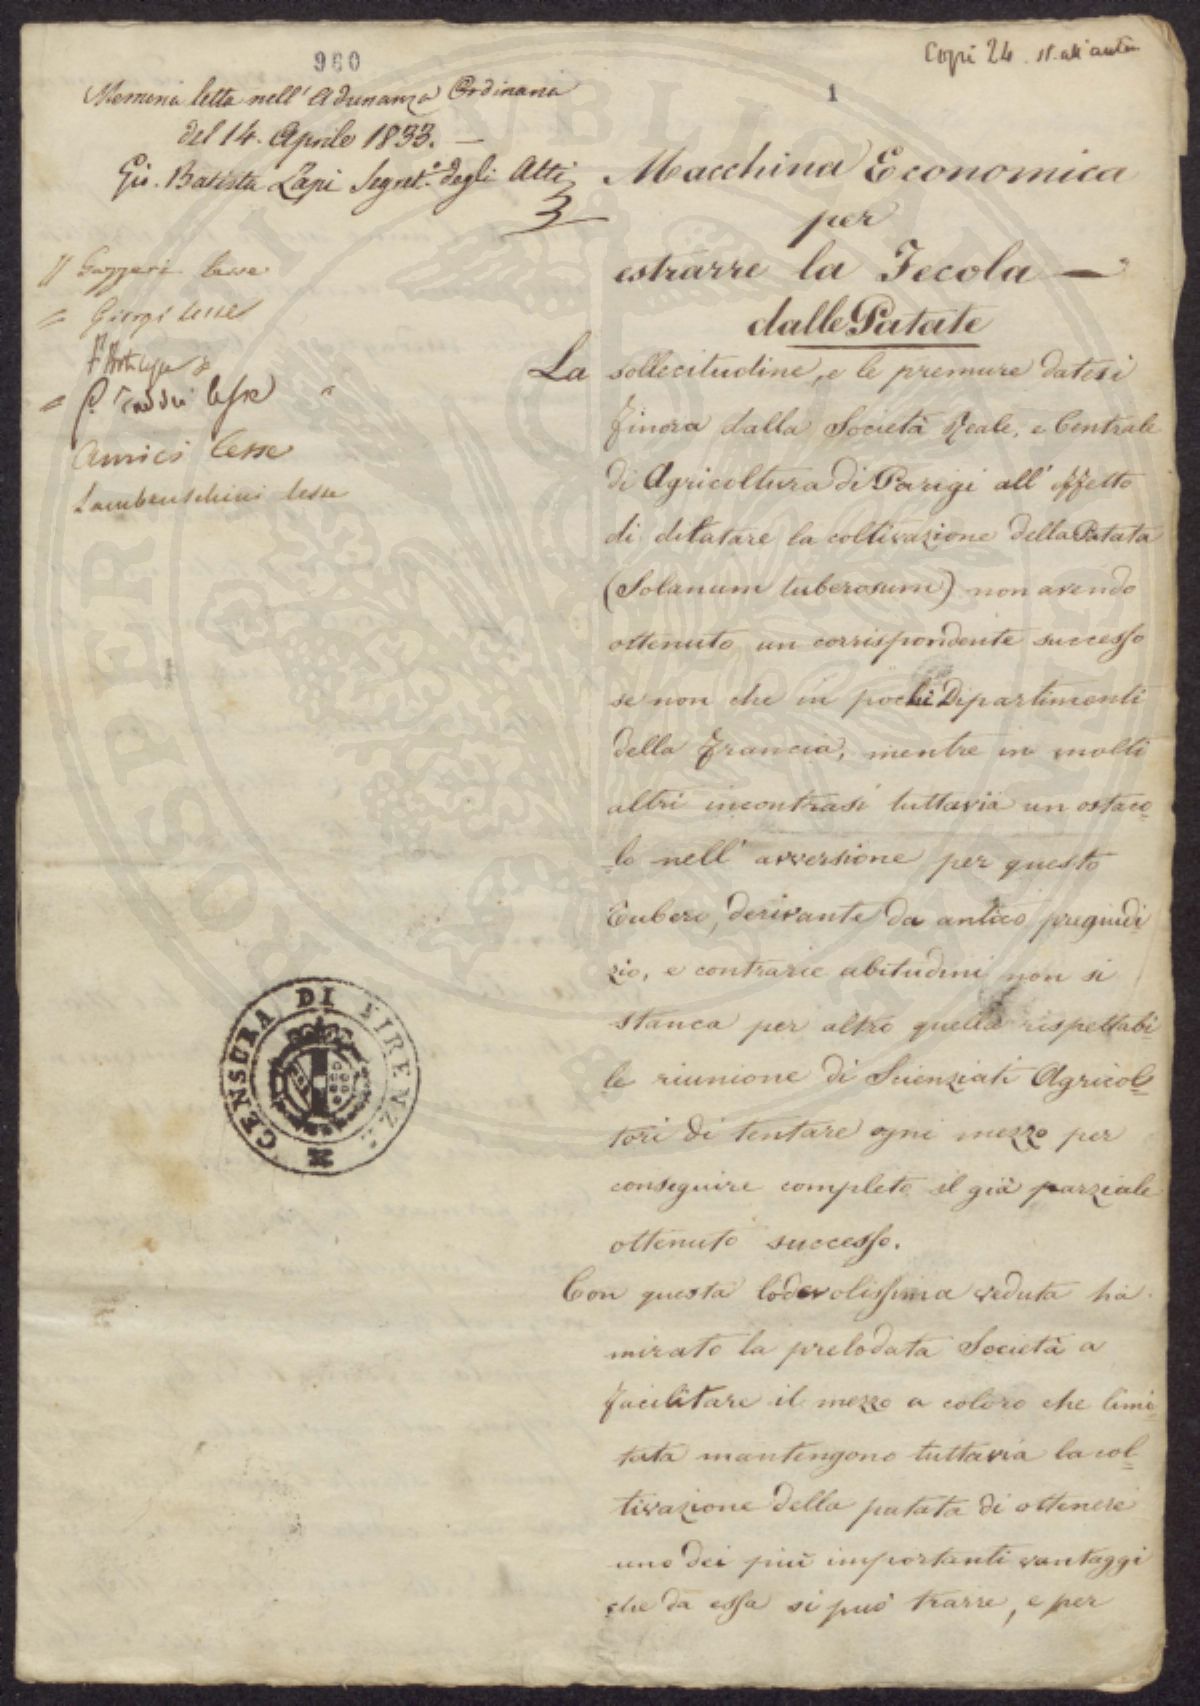 960
Copi 24
1
Memoria letta nell' Adunanza Ordinaria
del 14. Aprile 1833. —
Gio. Batista Lapi Segret.º degli Atti
Macchina Economica
per
estrarre la Fecola —
dalle Patate
Gazzeri lesse
Giorgi lesse
Taddei lesse
Amici lesse
Lambruschini lesse
La sollecitudine, e le premure datesi
finora dalla Società Reale, e Centrale
di Agricoltura di Parigi all' effetto
di dilatare la coltivazione della Patata
(Solanum tuberosum) non avendo
ottenuto un corrispondente successo
se non che in pochi Dipartimenti
della Francia, mentre in molti
altri incontrasi tuttavia un ostaco=
lo nell' avversione per questo
Tubero, derivante da antico pregiudi
zio, e contrarie abitudini non si
stanca per altro quella rispettabi
le riunione di Scienziati Agricol=
tori di tentare ogni mezzo per
conseguire completo il già parziale
ottenuto successo.
Con questa lodevolissima veduta ha
mirato la prelodata Società a
facilitare il mezzo a coloro che limi=
tata mantengono tuttavia la col=
tivazione della patata di ottenere
uno dei più importanti vantaggi
che da essa si può trarre, e per
CENSURA DI FIRENZE